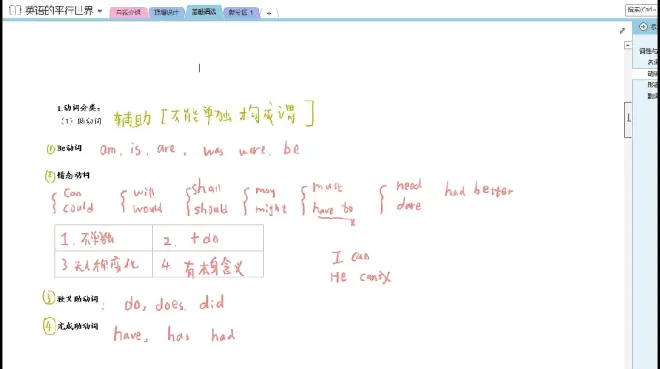 英语的平行世界
顶层设计 基础语法 新分区 1
1.动词分类:
(1) 助动词 辅助 [不能单独构成谓]
① Be动词 am, is, are, was were, be
② 情态动词
can will shall may must need had better
could would should might have to dare
1. 不单独 2. +do
3.无人称变化 4. 有本身含义
I can
He can
③ 独义助动词: do, does, did
④ 完成助动词 have, has had
词性与